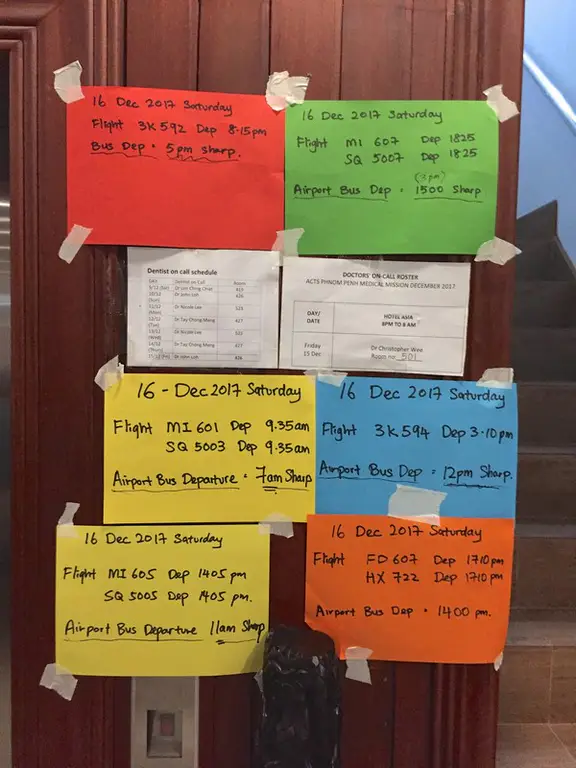 16 Dec 2017 Saturday
Flight 3K 592 Dep 8.15pm
Bus Dep = 5pm sharp.
16 Dec 2017 Saturday
Flight MI 607 Dep 1825
SQ 5007 Dep 1825
(3pm)
Airport Bus Dep = 1500 Sharp
Dentist on call schedule
Date Dentist on Call Room
9/12 (Sat) Dr Lim Ching Chiat
10/12 (Sun) Dr John Loh 426
11/12 (Mon) Dr Nicole Lee 523
12/12 (Tue) Dr Tay Chong Meng 427
13/12 (Wed) Dr Nicole Lee 523
14/12 (Thurs) Dr Tay Chong Meng 427
15/12 (Fri) Dr John Loh 426
DOCTORS' ON-CALL ROSTER
ACTS PHNOM PENH MEDICAL MISSION DECEMBER 2017
DAY/ DATE
HOTEL ASIA
8PM TO 8 AM
Friday
15 Dec
Dr Christopher Wee
Room no 501
16 - Dec 2017 Saturday
Flight MI 601 Dep 9.35am
SQ 5003 Dep 9.35am
Airport Bus Departure = 7am Sharp
16 Dec 2017 Saturday
Flight 3K 594 Dep 3.10pm
Airport Bus Dep = 12pm Sharp.
16 Dec 2017 Saturday
Flight MI 605 Dep 1405 pm
SQ 5005 Dep 1405 pm.
Airport Bus Departure 11am Sharp
16 Dec 2017 Saturday
Flight FD 607 Dep 1710 pm
HX 722 Dep 1710 pm
Airport Bus Dep = 1400 pm.